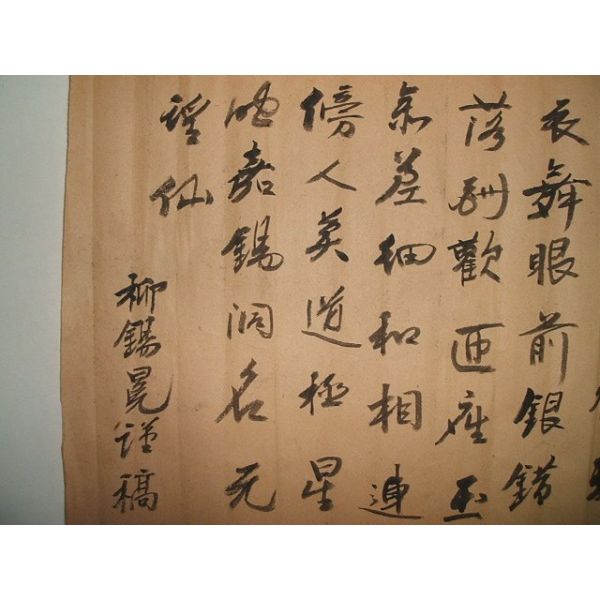 衣舞眼前銀錯
落酬歡匝座玉
參差細和相連
傍人莫道極星
晚嘉錫洞名元
謹仙
柳錫冕謹稿